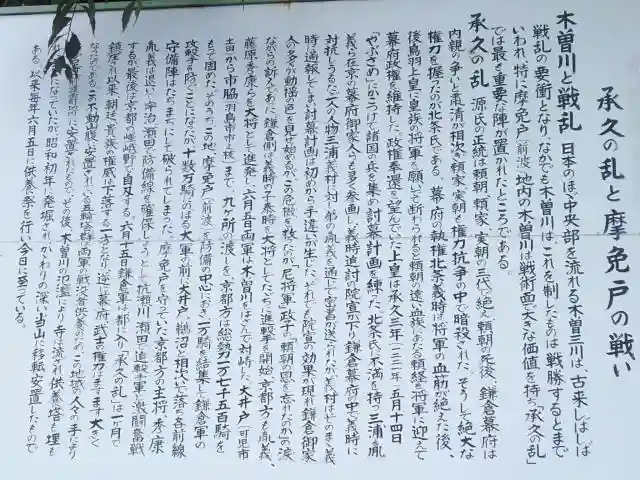 承久の乱と摩免戸の戦い
木曽川と戦乱 日本のほぼ中央部を流れる木曽三川は、古来しばしば
戦乱の要衝となり、なかでも木曽川は「これを制したものは戦勝するとまで
いわれ、特に摩免戸(前渡)地内の木曽川は戦術面で大きな価値を持ち、「承久の乱」
では最も重要な陣が置かれたところである。
承久の乱 源氏の正統は頼朝、頼家、実朝の三代で絶え、頼朝の死後、鎌倉幕府は
内親の争いと粛清が相次ぎ頼家、実朝も権力抗争の中で暗殺された。そうして絶大な
権力を握ったのが北条氏である。幕府の執権北条義時は将軍の血筋が絶えた後、
後鳥羽上皇に皇族の将軍を願いて断られると頼朝の遠い血族にあたる頼経を将軍に迎えて
幕府政権を維持した。政権奉還を望んでいた上皇は承久三年(一二二一年)五月十四日
「やぶさめ」にかこつけて諸国の兵を集め討幕計画を練った。北条氏に不満を持つ三浦胤
義ら在京の幕府御家人らも多く参画し義時追討の院宣が下った。鎌倉幕府中で義時に
対抗しうるただ一人の人物三浦義村には対し弟の胤義を通じて密書が送られたが義村はそのまま義
時に通報してしまい、討幕計画は初めから手違いが生じた。それでも院宣の効果が現れ鎌倉御家
人の多くが動揺の色を見せ始めるが、この危機を救ったのが「尼将軍」政子の「頼朝の恩を忘れたのか」の涙
ながらの訴えであった。鎌倉側は義時の子泰時を大将として、ただちに進撃を開始、京都方も胤義、
藤原秀康らを大将として進発した。六月五日両軍は木曽川をはさんで対峙した。大井戸(可児市
土田)から市脇(羽島市市之枝)まで、九ヶ所の渡しを京都方は総勢二万七千五百騎を
もって固めた。そのうちこの地「摩免戸(前渡)」を防備の中心におき一万騎を結集して鎌倉軍の
攻撃を防ぐことになったが、十数万騎にのぼる大軍の前に大井戸、鵜沼と相次いで落ち、各前線
守備陣はたちまちにして破られてしまった。「摩免戸」を守っていた京都方の主将、秀康、
胤義は退いて宇治、瀬田の防備線を確保しようとして杭瀬川、瀬田で追撃の軍と激闘奮戦
するが、最後は京都の嵯峨野で自刃する。六月十五日鎌倉軍は都に入り「承久の乱」は一ヶ月で
鎮圧され、以来、朝廷、貴族の権威は下落する一方となり、逆に幕府、武士の権力はますます大きく
なったのである。この不動山頂に安置されている五輪塔群は両軍の戦没者供養のため、この地域の人々の手により
安置されたもので、その後、木曽川の氾濫により、寺は流れ供養塔も埋も
になっていたが、昭和初年、発掘され、かかわりの深い当山に移転、安置したもので
ある。以来毎年六月五日に供養祭を行い今日に至っている。